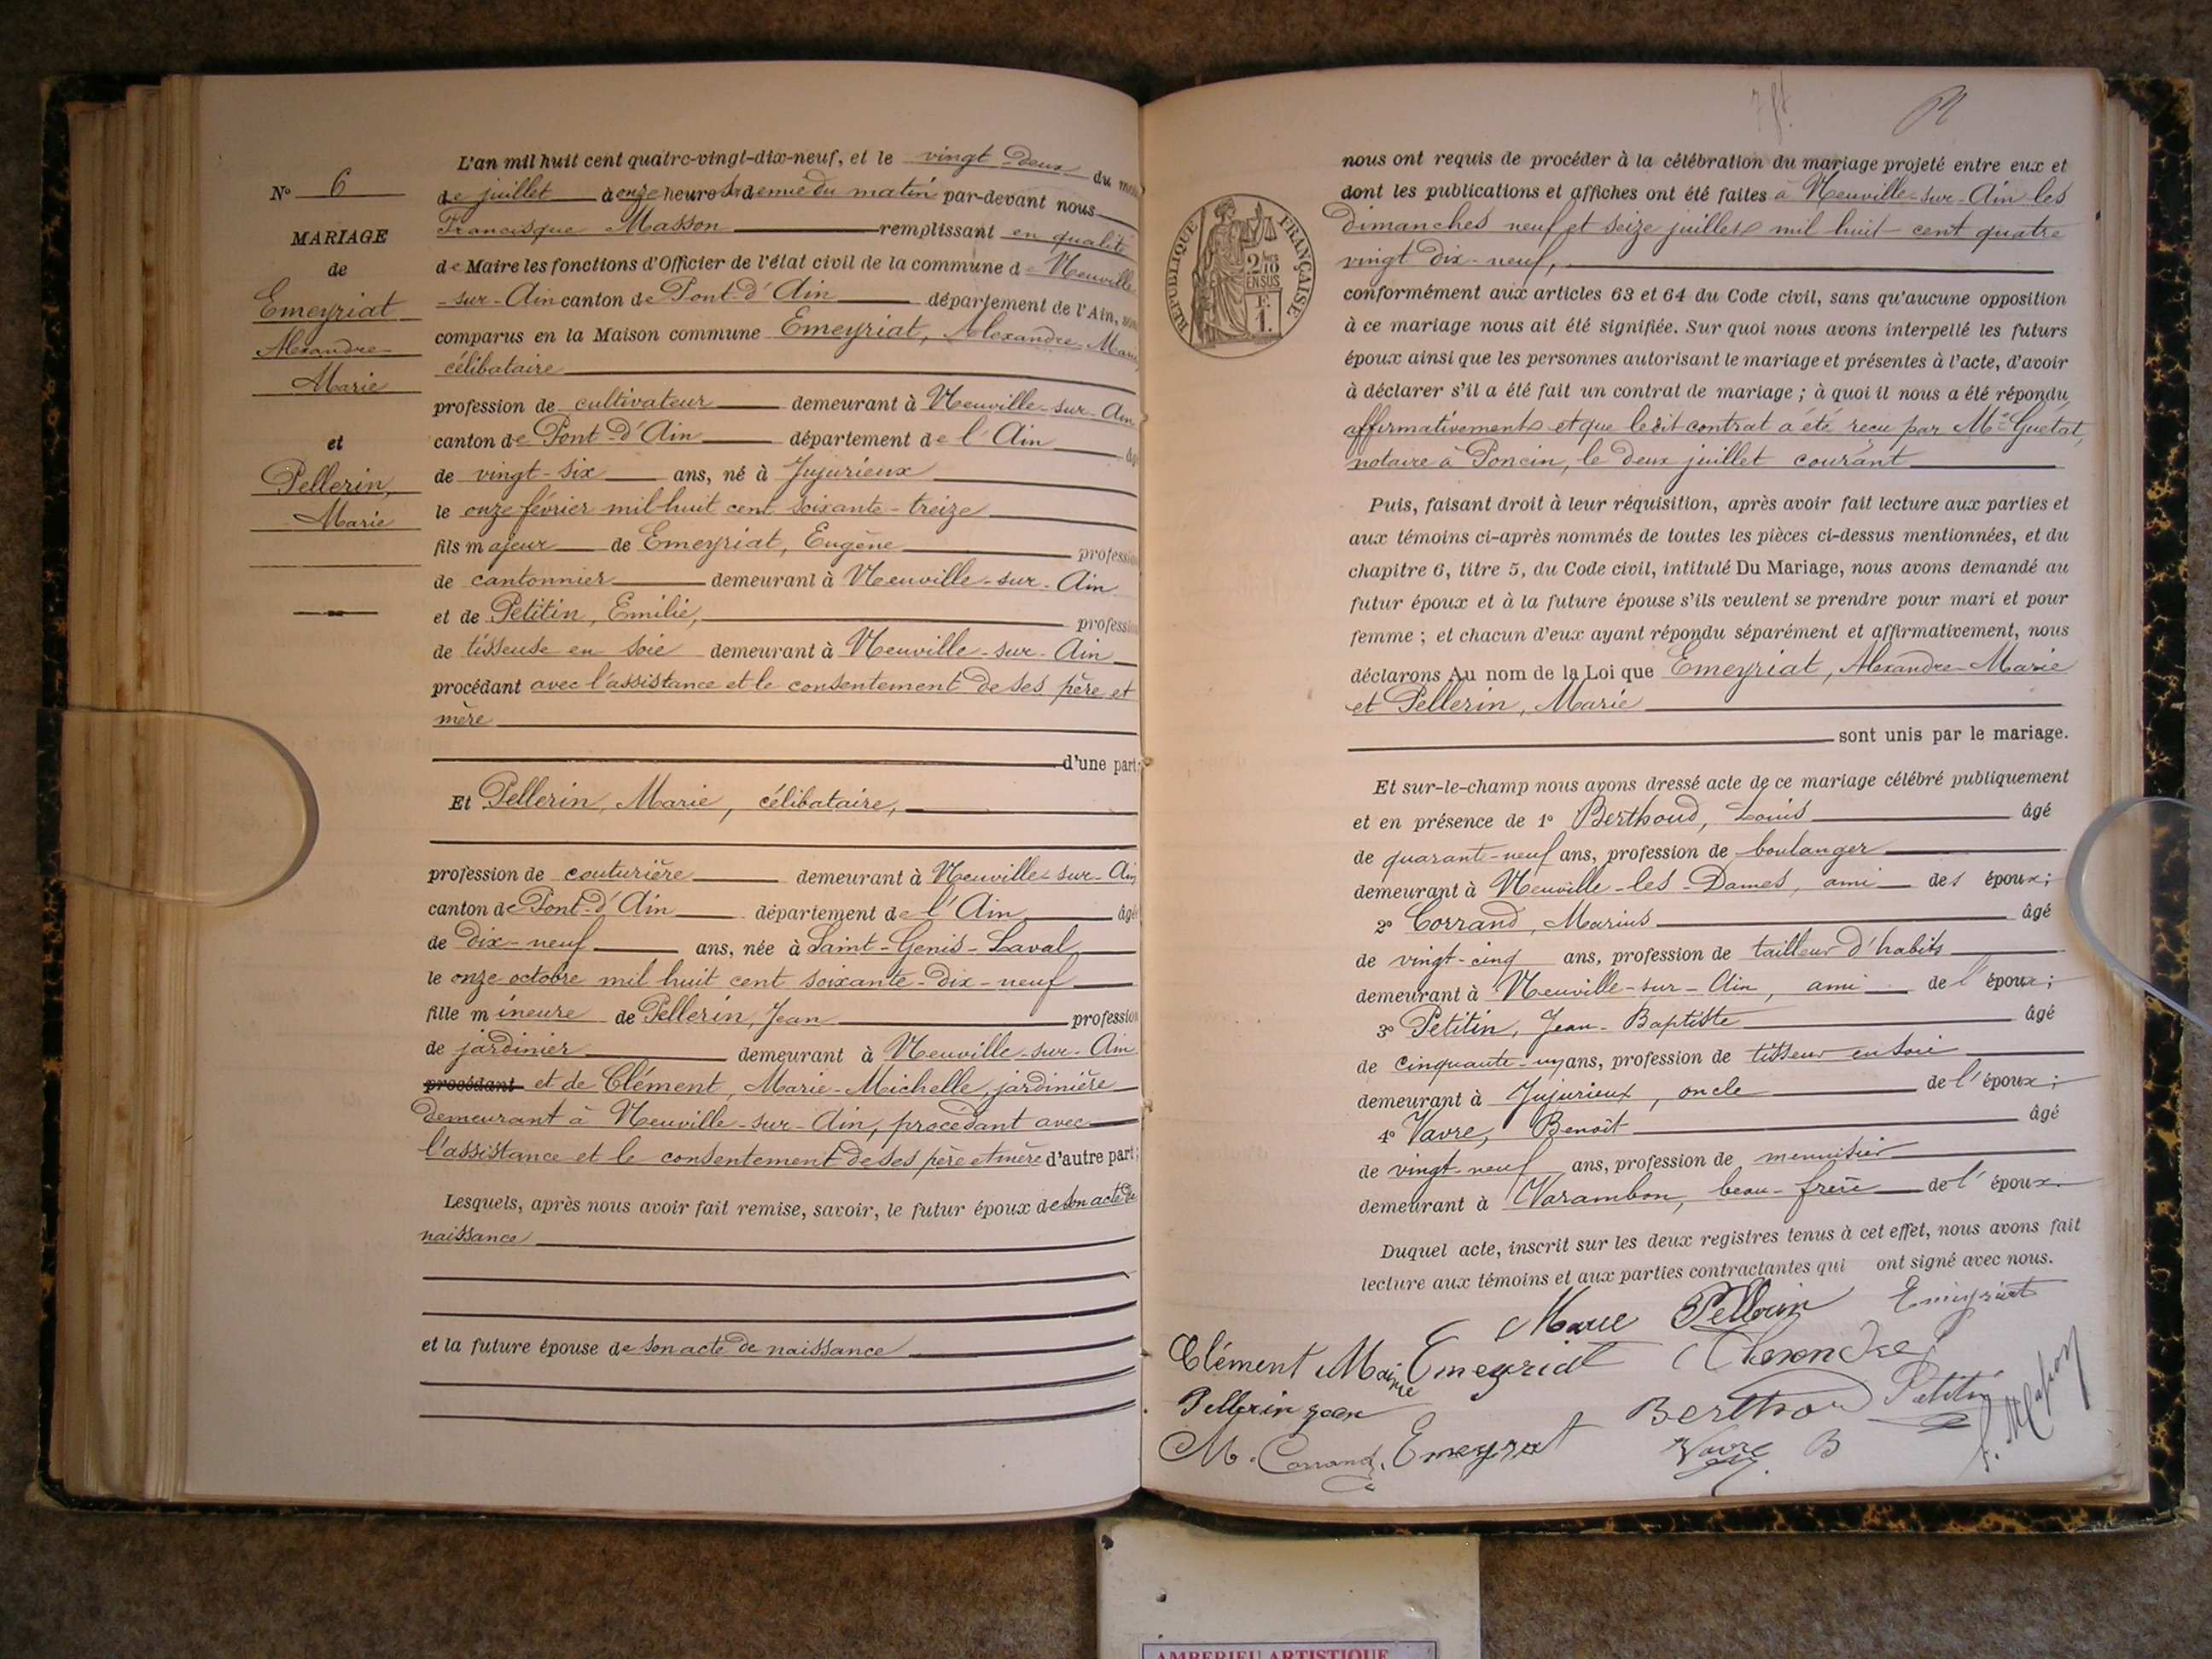 N° 6
MARIAGE
de
Emeyriat
Alexandre
Marie
et
Pellerin,
Marie
L'an mil huit cent quatre-vingt-dix-neuf, et le vingt deux du mois
de juillet à onze heures et demie du matin par-devant nous
Francisque Masson remplissant en qualité
de Maire les fonctions d'Officier de l'état civil de la commune de Neuville
-sur-Ain canton de Pont-d'Ain département de l'Ain, sont
comparus en la Maison commune Emeyriat, Alexandre-Marie
célibataire
profession de cultivateur demeurant à Neuville-sur-Ain
canton de Pont-d'Ain département de l'Ain âgé
de vingt-six ans, né à Jujurieux
le onze février mil huit cent soixante-treize
fils majeur de Emeyriat, Eugène profession
de cantonnier demeurant à Neuville-sur-Ain
et de Petitin, Emilie, profession
de tisseuse en soie demeurant à Neuville-sur-Ain
procédant avec l'assistance et le consentement de ses père et
mère
d'une part;
Et Pellerin, Marie, célibataire,
profession de couturière demeurant à Neuville-sur-Ain
canton de Pont-d'Ain département de l'Ain âgée
de dix-neuf ans, née à Saint-Genis-Laval
le onze octobre mil huit cent soixante-dix-neuf
fille mineure de Pellerin, Jean profession
de jardinier demeurant à Neuville-sur-Ain
procédant et de Clément, Marie-Michelle, jardinière
demeurant à Neuville-sur-Ain, procédant avec
l'assistance et le consentement de ses père et mère d'autre part;
Lesquels, après nous avoir fait remise, savoir, le futur époux de son acte de
naissance
et la future épouse de son acte de naissance
RÉPUBLIQUE FRANÇAISE
2/10 EN SUS
F. 1.
nous ont requis de procéder à la célébration du mariage projeté entre eux et
dont les publications et affiches ont été faites à Neuville-sur-Ain les
dimanches neuf et seize juillet mil huit cent quatre
vingt dix-neuf,
conformément aux articles 63 et 64 du Code civil, sans qu'aucune opposition
à ce mariage nous ait été signifiée. Sur quoi nous avons interpellé les futurs
époux ainsi que les personnes autorisant le mariage et présentes à l'acte, d'avoir
à déclarer s'il a été fait un contrat de mariage ; à quoi il nous a été répondu
affirmativement et que ledit contrat a été reçu par Me Guétat,
notaire à Poncin, le deux juillet courant
Puis, faisant droit à leur réquisition, après avoir fait lecture aux parties et
aux témoins ci-après nommés de toutes les pièces ci-dessus mentionnées, et du
chapitre 6, titre 5, du Code civil, intitulé Du Mariage, nous avons demandé au
futur époux et à la future épouse s'ils veulent se prendre pour mari et pour
femme ; et chacun d'eux ayant répondu séparément et affirmativement, nous
déclarons Au nom de la Loi que Emeyriat, Alexandre-Marie
et Pellerin, Marie
sont unis par le mariage.
Et sur-le-champ nous avons dressé acte de ce mariage célébré publiquement
et en présence de 1° Berthoud, Louis âgé
de quarante-neuf ans, profession de boulanger
demeurant à Neuville-les-Dames, ami des époux;
2° Corrand, Marius âgé
de vingt-cinq ans, profession de tailleur d'habits
demeurant à Neuville-sur-Ain, ami de l'époux;
3° Petitin, Jean-Baptiste âgé
de cinquante-un ans, profession de tisseur en soie
demeurant à Jujurieux, oncle de l'époux;
4° Vavre, Benoît âgé
de vingt-neuf ans, profession de menuisier
demeurant à Varambon, beau-frère de l'époux.
Duquel acte, inscrit sur les deux registres tenus à cet effet, nous avons fait
lecture aux témoins et aux parties contractantes qui ont signé avec nous.
Marie Pellerin Emeyriat
Clément Marie Emeyriat Alexandre
Pellerin Jean Berthoud Petitin F. Masson
M. Corrand. Emeyriat Vavre B
AMBERIEU ARTISTIQUE